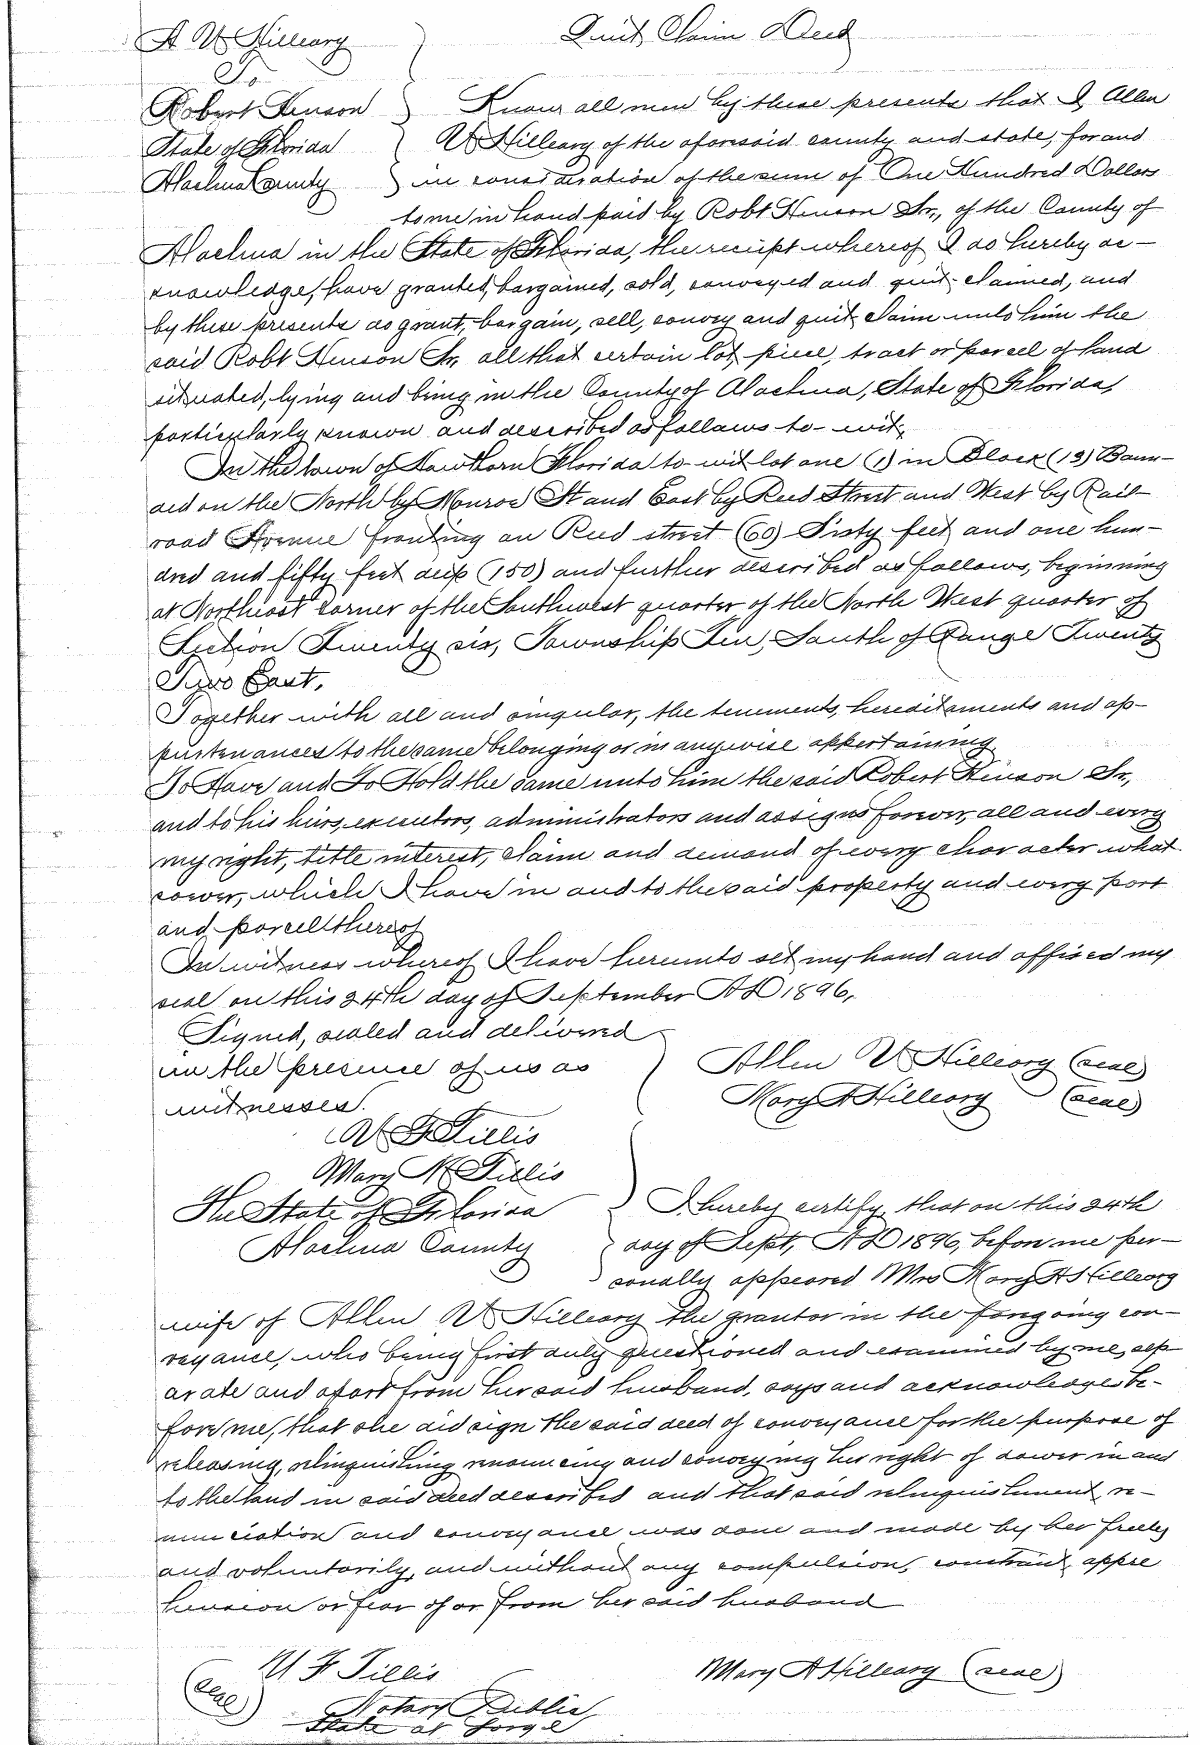 A W Hilleary Quit Claim Deed
To
Robert Henson Know all men by these presents that I Allen
State of Florida W Hilleary of the aforesaid county and state, for and
Alachua County in consideration of the sum of One Hundred Dollars
to me in hand paid by Robt Henson Sr., of the County of
Alachua in the State of Florida, the receipt whereof I do hereby ac-
knowledge, have granted, bargained, sold, conveyed and quit-claimed, and
by these presents do grant, bargain, sell, convey and quit claim unto him the
said Robt Henson Sr, all that certain lot, piece, tract or parcel of land
situated, lying and being in the County of Alachua, State of Florida,
particularly known and described as follows to-wit,
In the town of Hawthorn Florida to-wit lot one (1) in Block (13) Boun-
ded on the North by Monroe St and East by Reed Street and West by Rail-
road Avenue fronting on Reed street (60) Sixty feet and one hun-
dred and fifty feet deep (150) and further described as follows, beginning
at Northeast corner of the Southwest quarter of the North West quarter of
Section Twenty six, Township Ten, South of Range Twenty
Two East.
Together with all and singular, the tenements, hereditaments and ap-
purtenances to the same belonging or in anywise appertaining
To Have and To Hold the same unto him the said Robert Henson Sr.,
and to his heirs, executors, administrators and assigns forever, all and every
my right, title interest, claim and demand of every character what
soever, which I have in and to the said property and every part
and parcell thereof
In witness whereof I have hereunto set my hand and affixed my
seal on this 24th day of September AD 1896.
Signed, sealed and delivered
in the presence of us as Allen W Hilleary (seal)
witnesses. Mary A Hilleary (seal)
W F Tillis
Mary N Tillis
The State of Florida I hereby certify, that on this 24th
Alachua County day of Sept, AD 1896, before me per-
sonally appeared Mrs Mary A Hilleary
wife of Allen W Hilleary the grantor in the foregoing con-
veyance, who being first duly questioned and examined by me, sep
arate and apart from her said husband, says and acknowledges be-
fore me, that she did sign the said deed of conveyance for the purpose of
releasing, relinquishing renouncing and conveying her right of dower in and
to the land in said deed described and that said relinquishment, re-
nunciation and conveyance was done and made by her freely
and voluntarily, and without any compulsion, constraint, appre
hension or fear of or from her said husband
W F Tillis Mary A Hilleary (seal)
(seal) Notary Public
State at Large